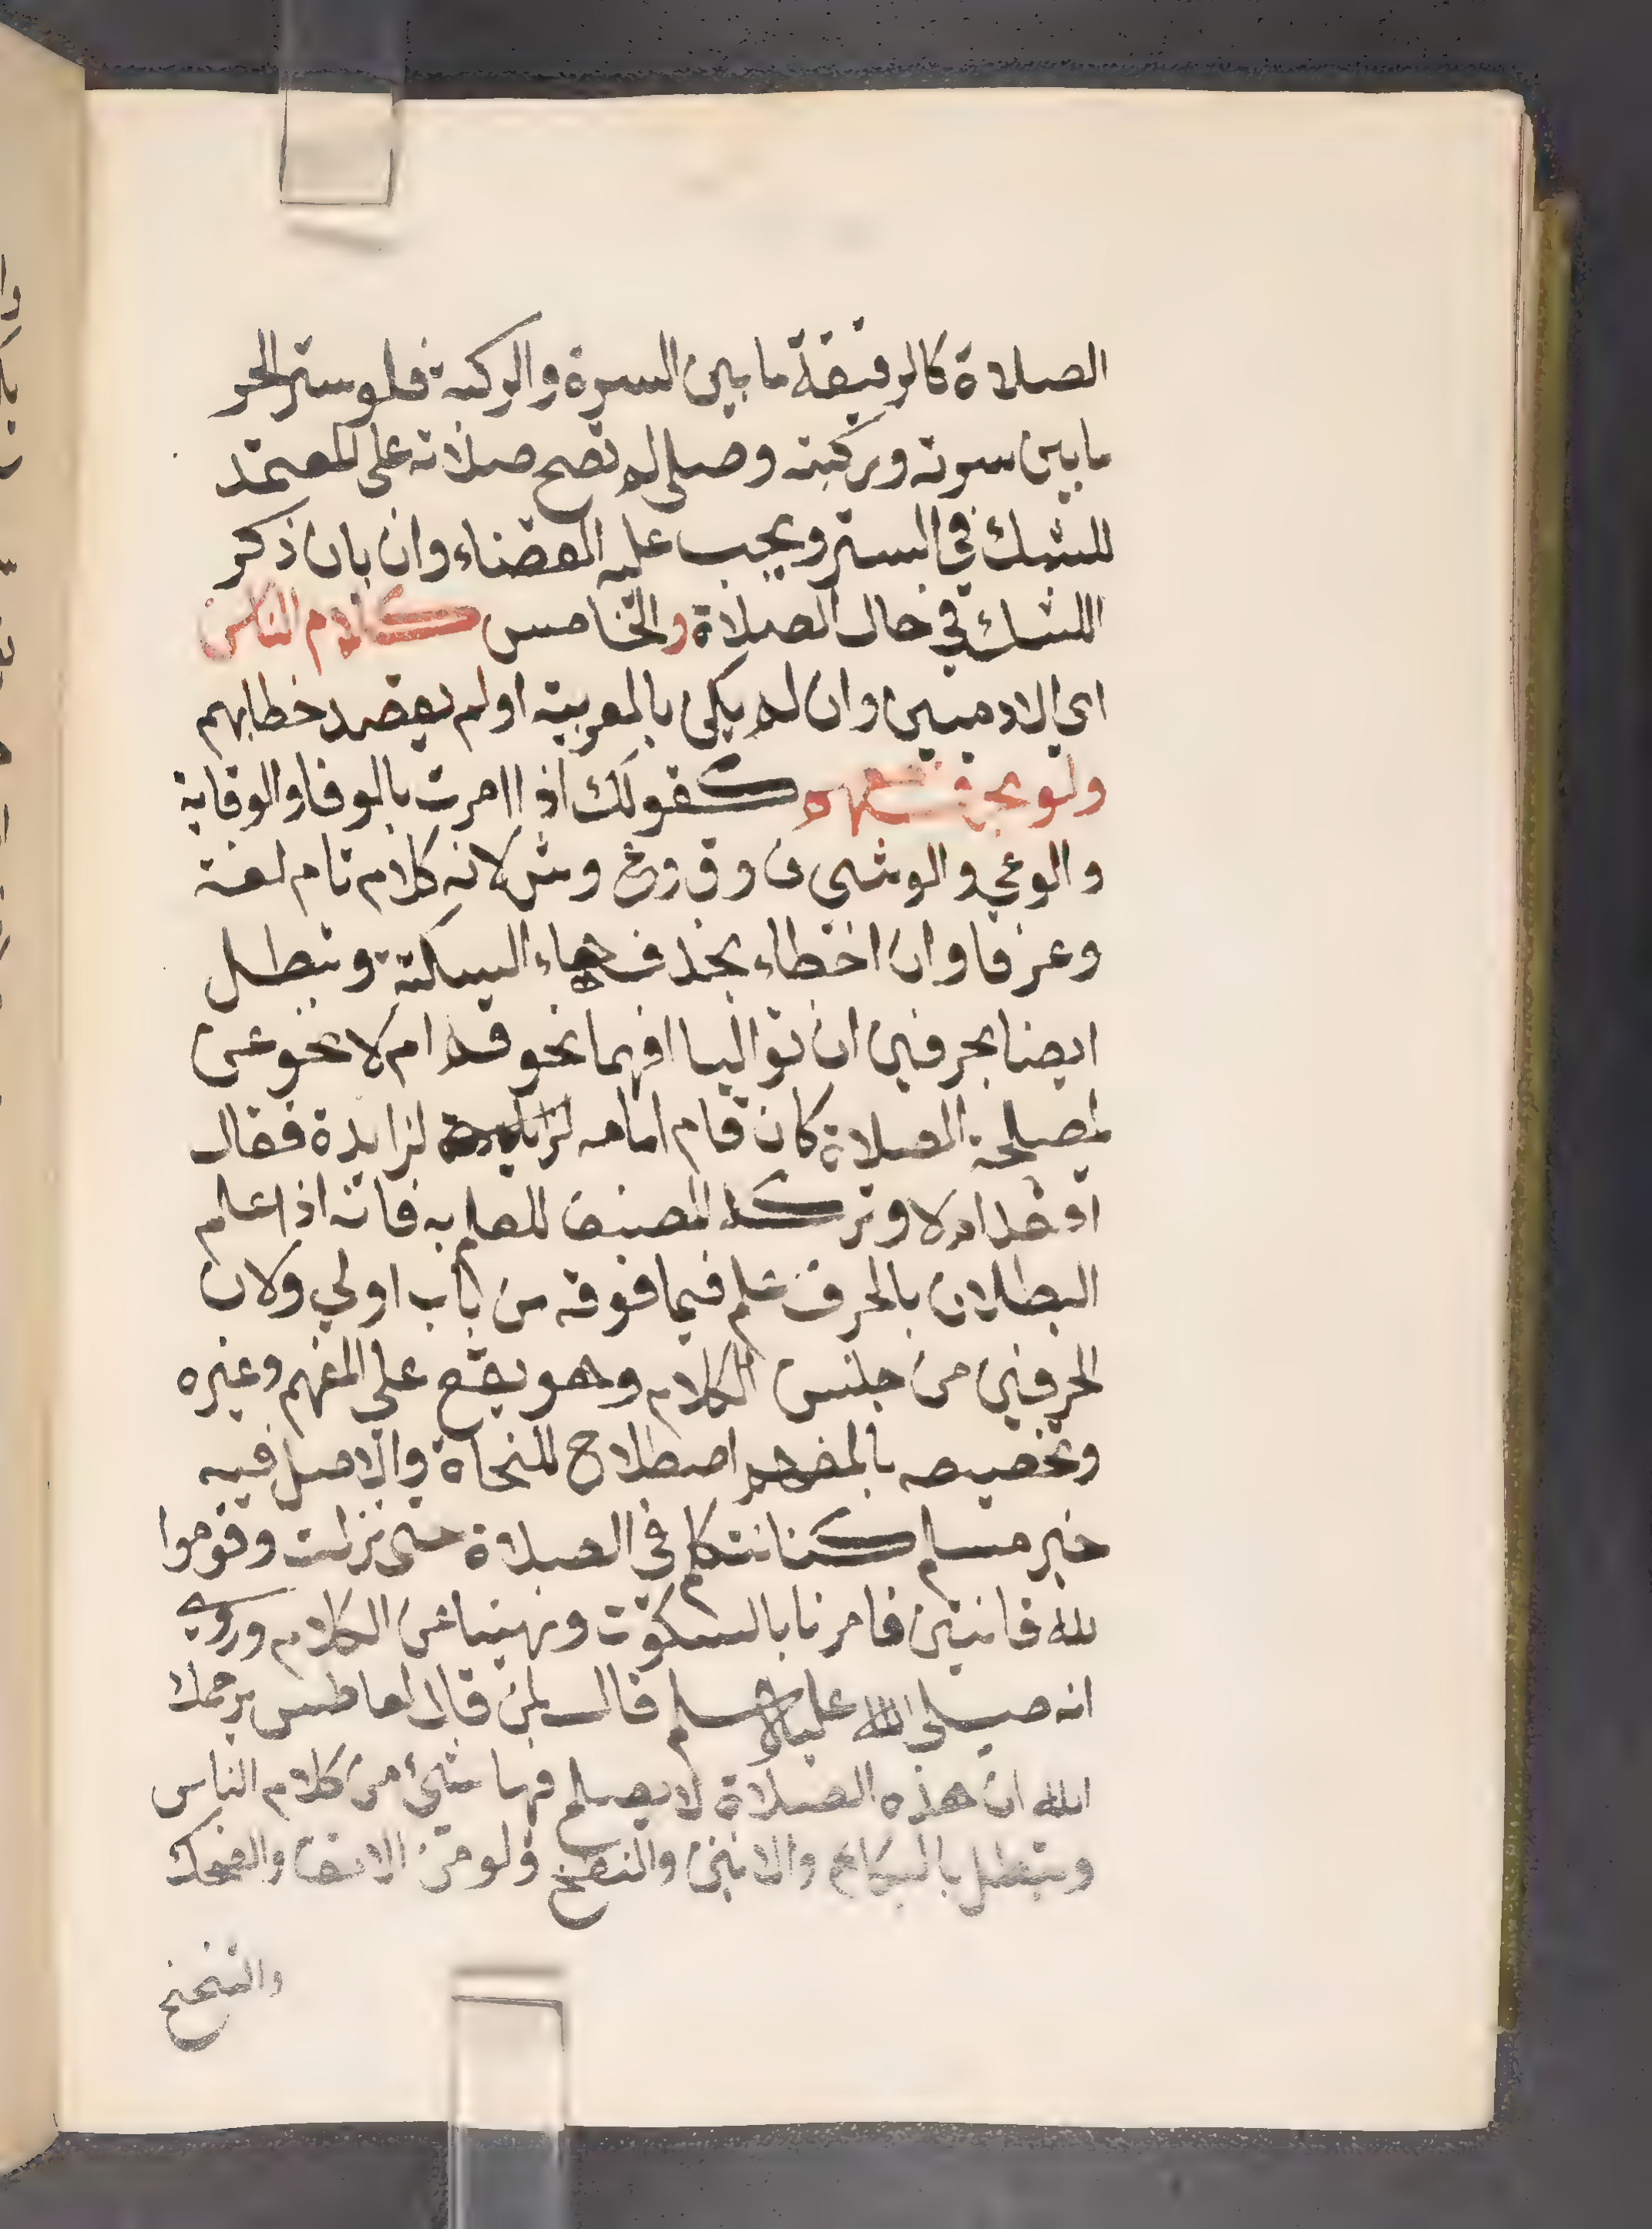 الصلاة كالرقيقة ما بين السرة والركبة فلو ستر الحر
ما بين سرته وركبته وصلى لم تصح صلاته على المعتمد
للشك في الستر ويجب عليه القضاء وان بان ذكر
اللشك في حال الصلاة والخامس كلام الناس
اي الادميين وان لم يكن بالعربية او لم يقصد خطابهم
ولو بحرف مفهم كقولك اذا امرت بالوفا والوقاية
والوعي والوشي ف وق وع وش لانه كلام تام لغة
وعرفا وان اخطاء بحذف هاء السكتة وتبطل
ايضا بحرفين ان تواليا افهما نحو قم ام لا نحو عن
لمصلحة الصلاة كان قام امامه لزايدة فقال
اقعد ام لا وتركه المصنف للعلم به فانه اذا علم
البطلان بالحرف علم فيما فوقه من باب اولي ولان
الحرفين من جنس الكلام وهو يقع على المفهم وغيره
وتخصيصه بالمفهم اصطلاح للنحاة والاصل فيه
خبر مسلم كنا نتكلم في الصلاة حتى نزلت وقوموا
لله قانتين فامرنا بالسكوت ونهينا عن الكلام وروي
انه صلى الله عليه وسلم قال لمن قال لعاطس يرحمك
الله ان هذه الصلاة لا يصلح فيها شيئ من كلام الناس
وتبطل بالبكاء والانين والنفخ ولو من الانف والضحك
والتنحنح